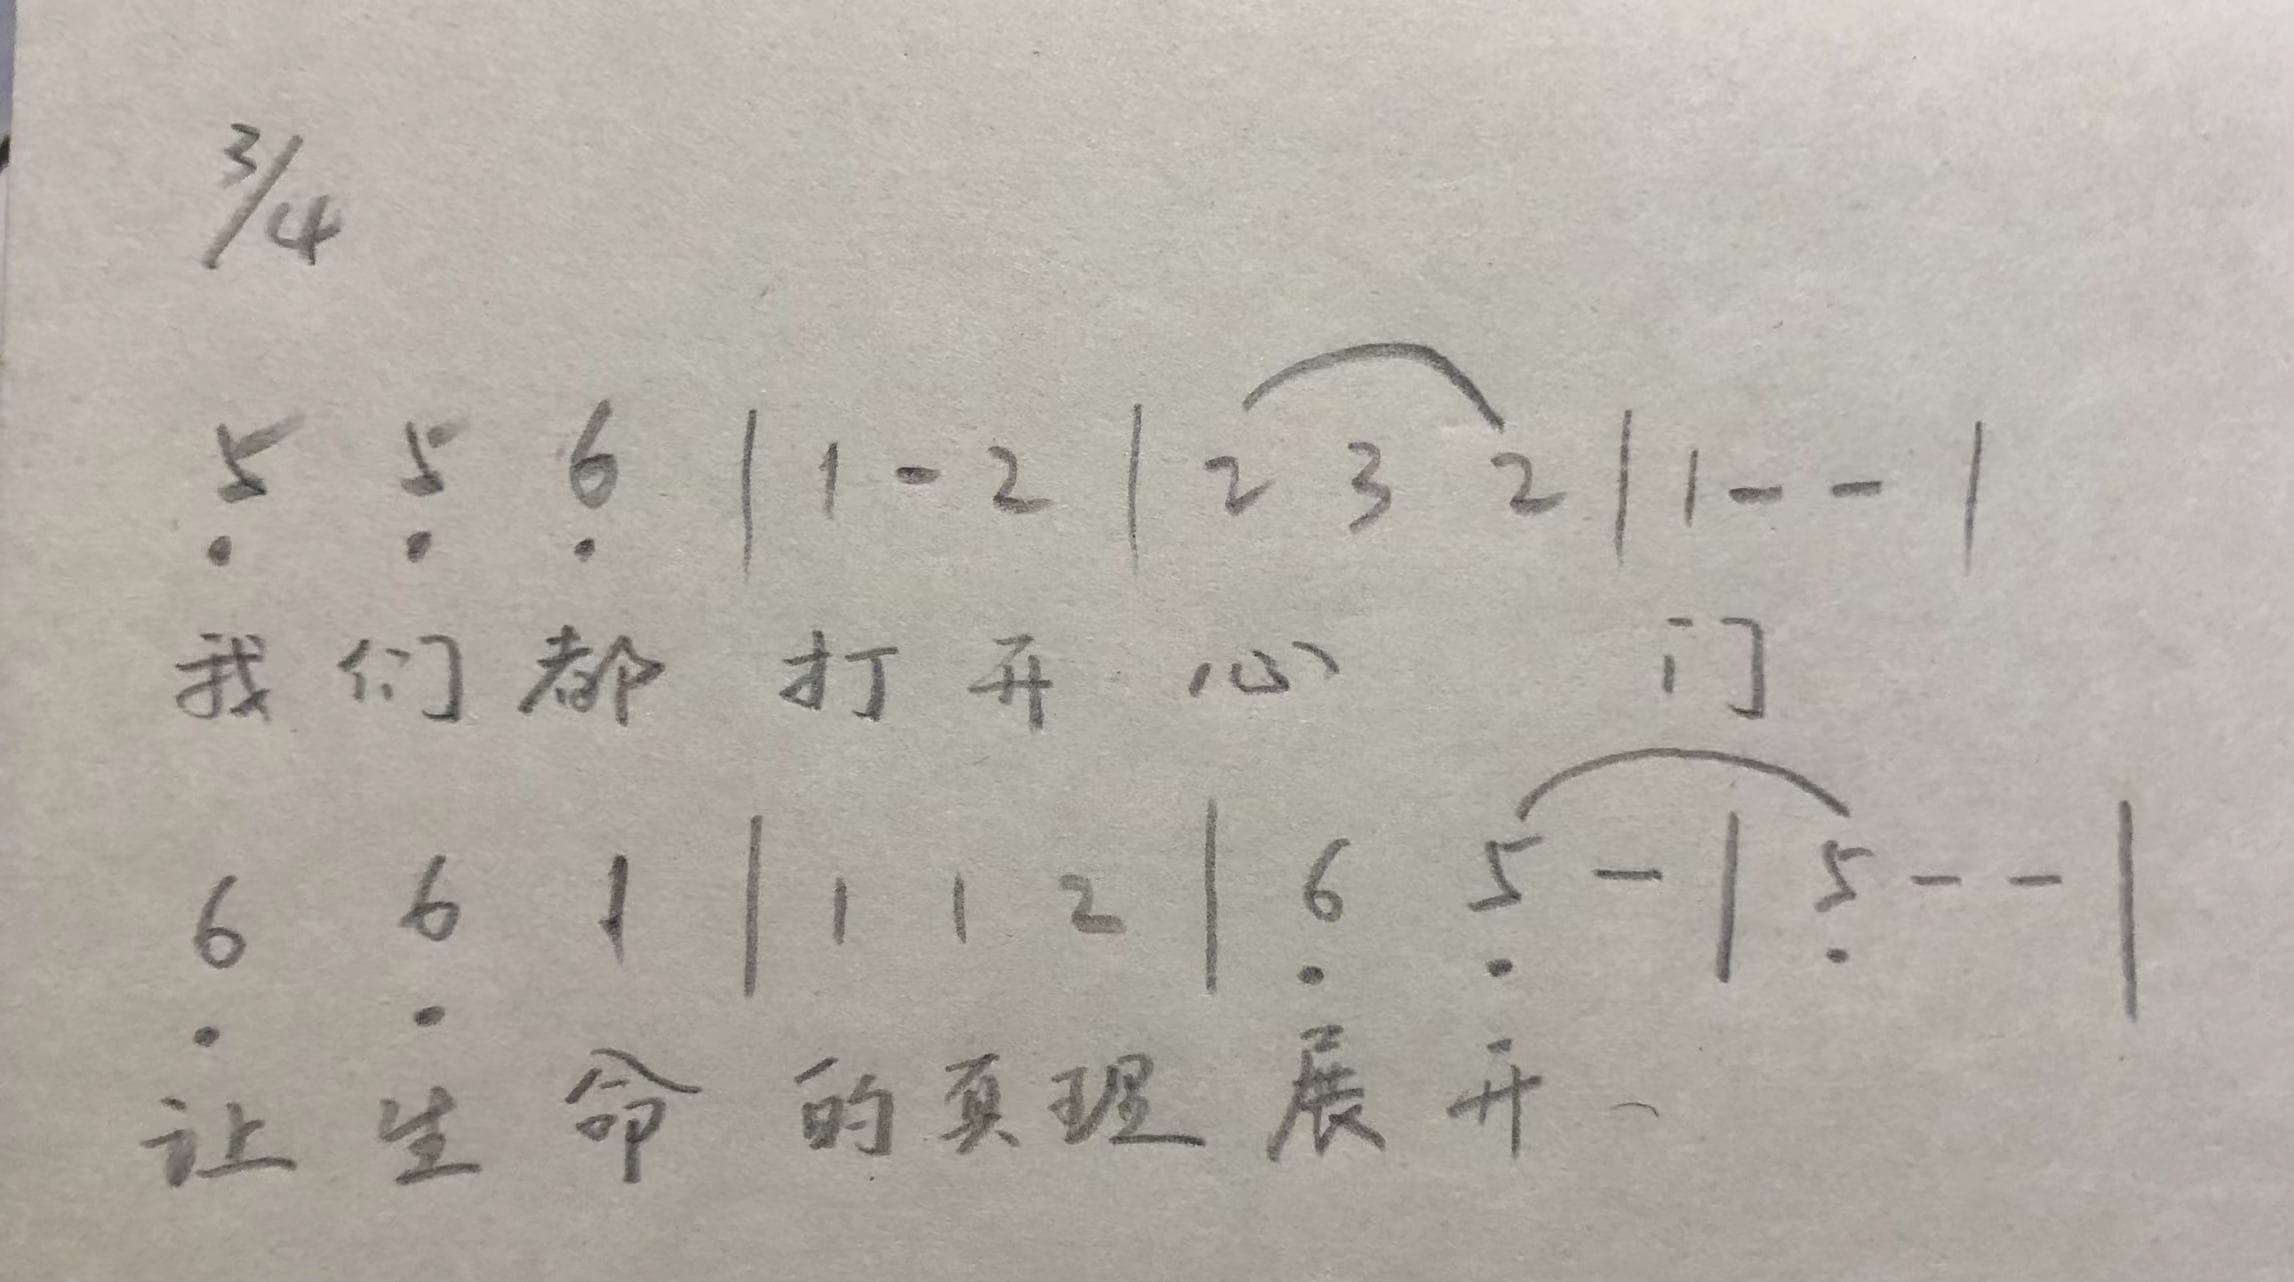 3/4
5̣ 5̣ 6̣ | 1 - 2 | 2 3 2 | 1 - - |
我们都打开心门
6̣ 6̣ 1 | 1 1 2 | 6̣ 5̣ - | 5̣ - - |
让生命的真理展开